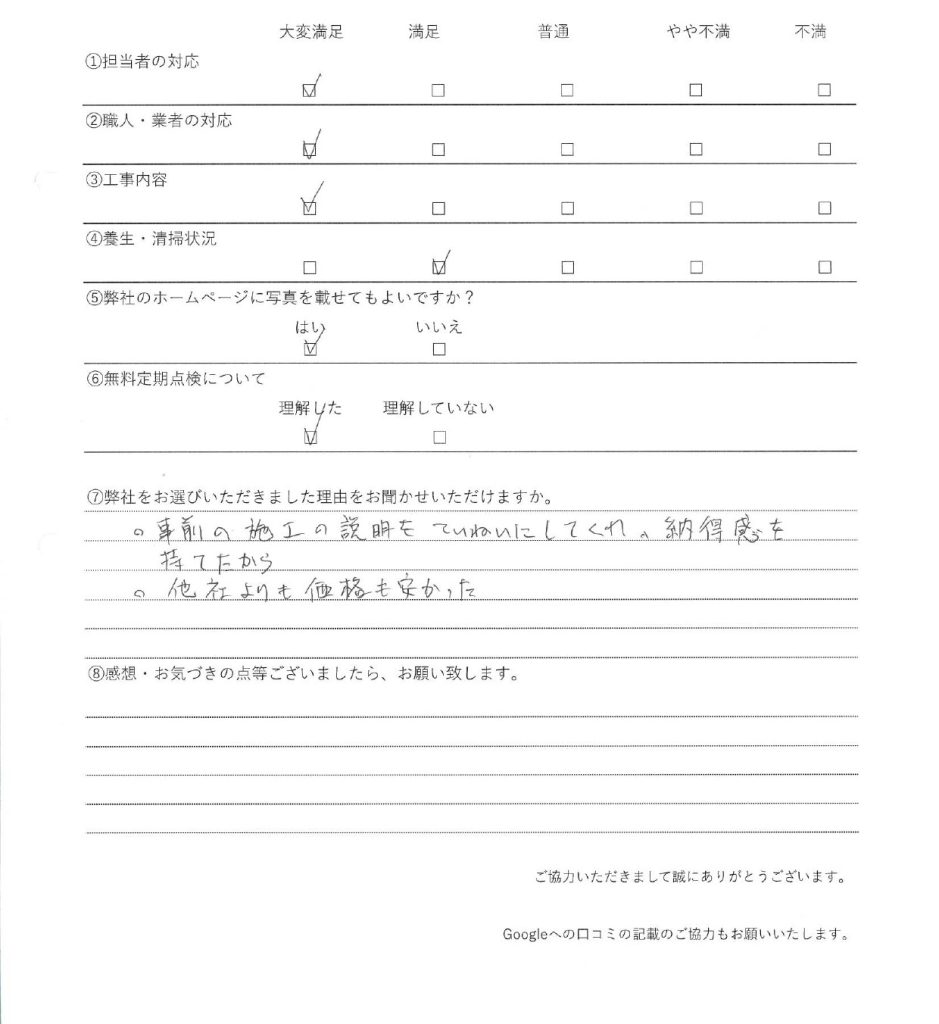 大変満足 満足 普通 やや不満 不満
①担当者の対応
☑ □ □ □ □
②職人・業者の対応
☑ □ □ □ □
③工事内容
☑ □ □ □ □
④養生・清掃状況
□ ☑ □ □ □
⑤弊社のホームページに写真を載せてもよいですか？
はい いいえ
☑ □
⑥無料定期点検について
理解した 理解していない
☑ □
⑦弊社をお選びいただきました理由をお聞かせいただけますか。
○事前の施工の説明もていねいにしてくれ、納得感を
持てたから
○他社よりも価格も安かった
⑧感想・お気づきの点等ございましたら、お願い致します。
ご協力いただきまして誠にありがとうございます。
Googleへの口コミの記載のご協力もお願いいたします。